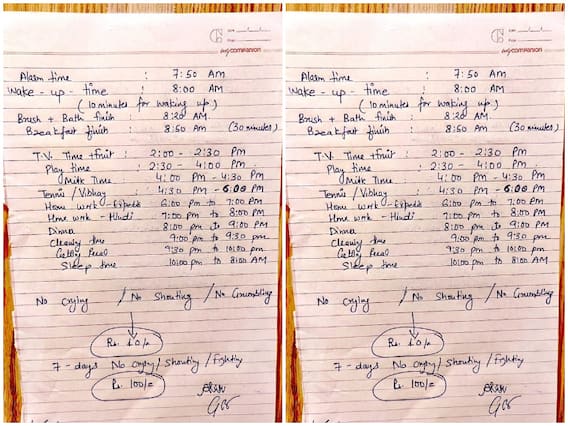 Date
companion
Alarm time : 7:50 AM
Wake-up-time : 8:00 AM
(10 minutes for waking up)
Brush + Bath finish : 8:20 AM
Breakfast finish : 8:50 AM (30 minutes)
T.V. Time + fruit : 2:00 - 2:30 PM
Play time : 2:30 - 4:00 PM
Milk Time : 4:00 PM - 4:30 PM
Tennis / : 4:30 PM - 6:00 PM
Home work - : 6:00 pm to 7:00 PM
Home work - Hindi : 7:00 PM to 8:00 PM
Dinner 8:00 pm to 9:00 PM
Cleaning time 9:00 pm to 9:30 pm
9:30 pm to 10:00 pm
Sleep time 10:00 pm to 8:00 AM
No Crying / No Shouting / No Grumbling
Rs. 10/=
7-days No crying / Shouting / Fighting
Rs. 100/=
Date
companion
Alarm time : 7:50 AM
Wake-up-time : 8:00 AM
(10 minutes for waking up)
Brush + Bath finish : 8:20 AM
Breakfast finish : 8:50 AM (30 minutes)
T.V. Time + fruit : 2:00 - 2:30 PM
Play time : 2:30 - 4:00 PM
Milk Time : 4:00 PM - 4:30 PM
Tennis / : 4:30 PM - 6:00 PM
Home work - : 6:00 pm to 7:00 PM
Home work - Hindi : 7:00 PM to 8:00 PM
Dinner 8:00 pm to 9:00 PM
Cleaning time 9:00 pm to 9:30 pm
9:30 pm to 10:00 pm
Sleep time 10:00 pm to 8:00 AM
No Crying / No Shouting / No Grumbling
Rs. 10/=
7-days No crying / Shouting / Fighting
Rs. 100/=